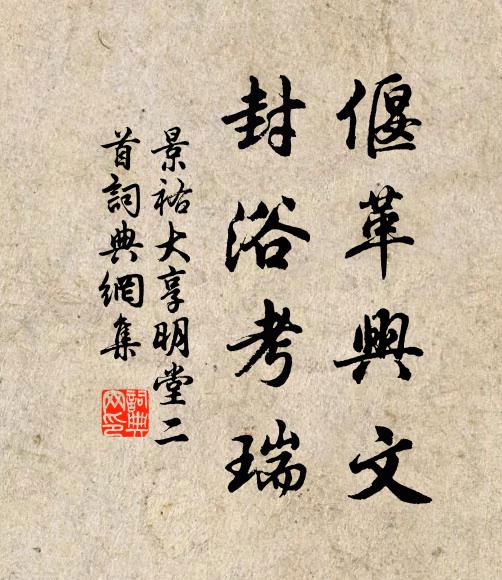 偃革興文
封浴考瑞
景祐大享明堂二
首詞典網集
詞典
网印